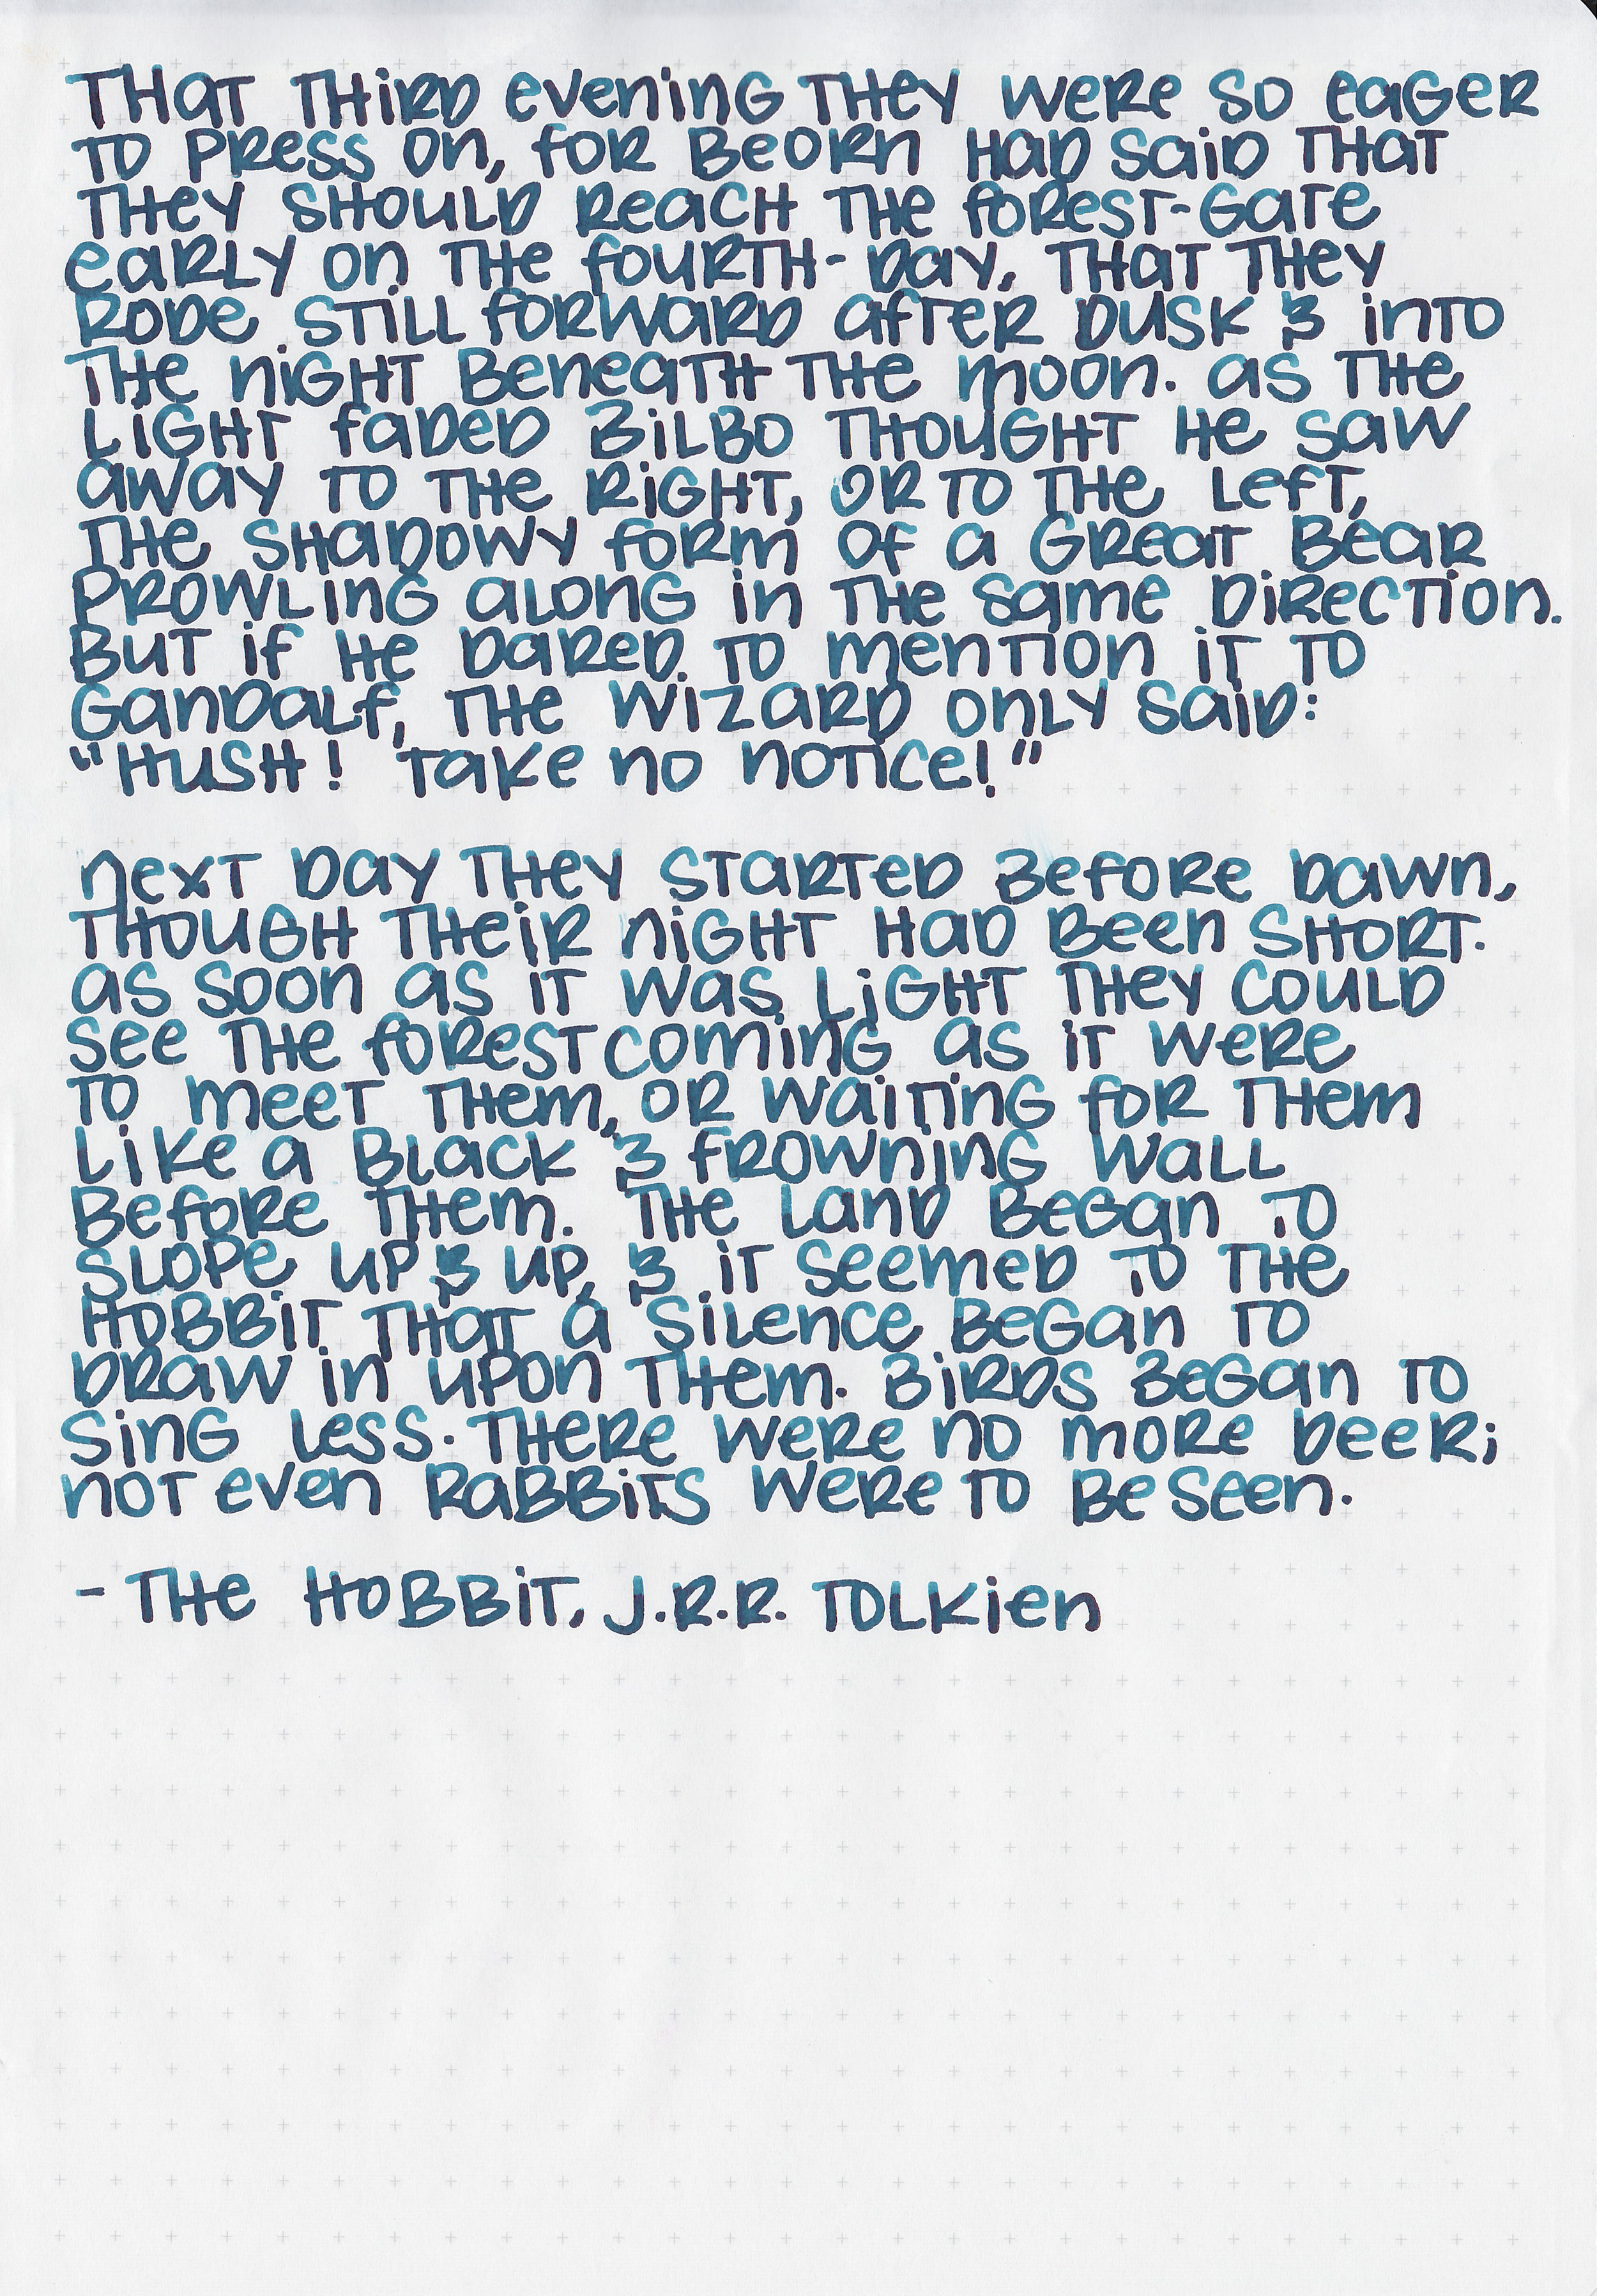 That third evening they were so eager
to press on, for Beorn had said that
they should reach the forest-gate
early on the fourth-day, that they
rode still forward after dusk & into
the night beneath the moon. As the
light faded Bilbo thought he saw
away to the right, or to the left,
the shadowy form of a great bear
prowling along in the same direction.
But if he dared to mention it to
Gandalf, the wizard only said:
"Hush! Take no notice!"
Next day they started before dawn,
though their night had been short.
As soon as it was light they could
see the forest coming as it were
to meet them, or waiting for them
like a black & frowning wall
before them. The land began to
slope up & up, & it seemed to the
hobbit that a silence began to
draw in upon them. Birds began to
sing less. There were no more deer;
not even rabbits were to be seen.
- The Hobbit, J.R.R. Tolkien